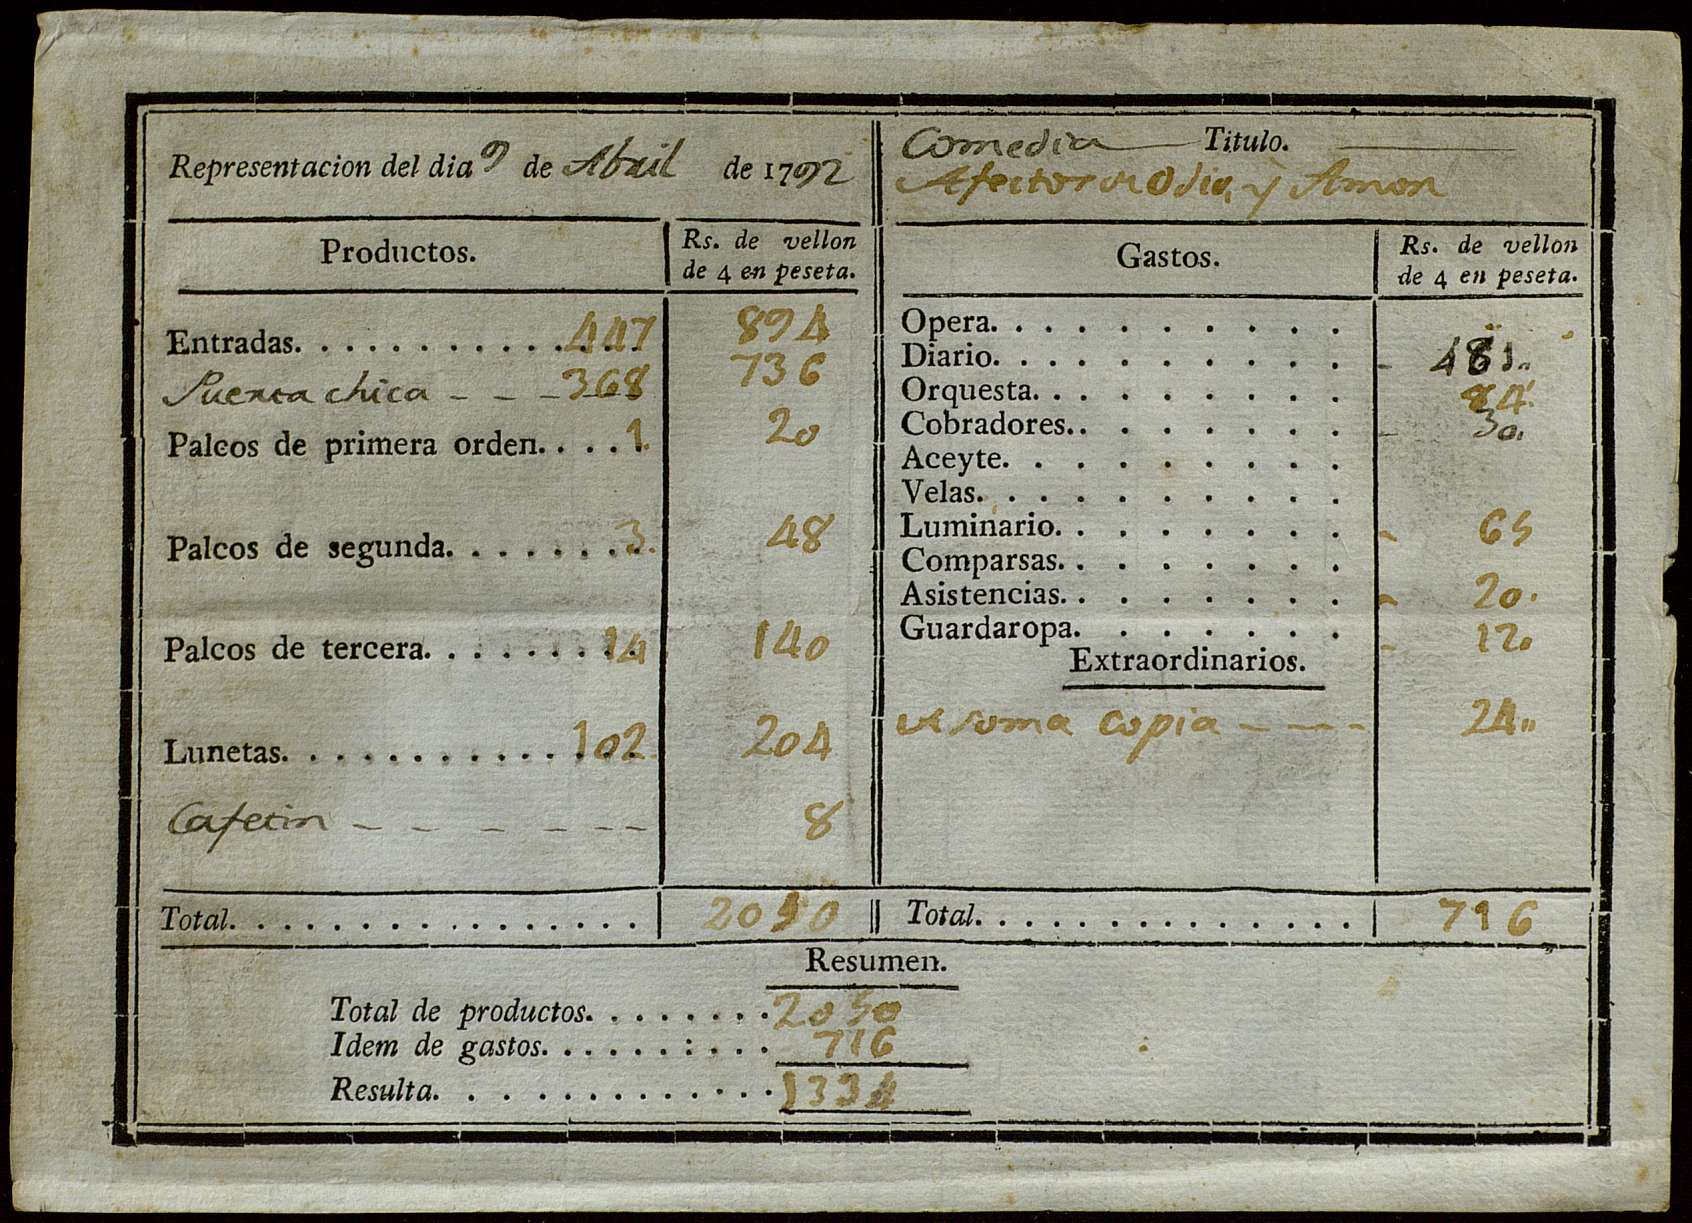 Representacion del dia 9 de Abril de 1792
Comedia Titulo.
Afectos de Odio, y Amor
Productos.
Rs. de vellon
de 4 en peseta.
Entradas. . . . . . . . . . . . . . 447 894
Puerta chica - - - - - 368 736
Palcos de primera orden. . . . 1. 20
Palcos de segunda. . . . . . . . 3. 48
Palcos de tercera. . . . . . . . . 14 140
Lunetas. . . . . . . . . . . . . . 102. 204
Cafetin - - - - - - - 8
Total. . . . . . . . . . . . . . . . 2050
Gastos.
Rs. de vellon
de 4 en peseta.
Opera. . . . . . . . . .
Diario. . . . . . . . . . - 481..
Orquesta. . . . . . . . . 84.
Cobradores. . . . . . . . - 30.
Aceyte. . . . . . . . .
Velas. . . . . . . . . .
Luminario. . . . . . . . - 65
Comparsas. . . . . . . .
Asistencias. . . . . . . . - 20.
Guardaropa. . . . . . . - 12.
Extraordinarios.
copia - - - - 24..
Total. . . . . . . . . . . . . . . 716
Resumen.
Total de productos. . . . . . . . 2050
Idem de gastos. . . . . . : . . . 716
Resulta. . . . . . . . . . . . . 1334